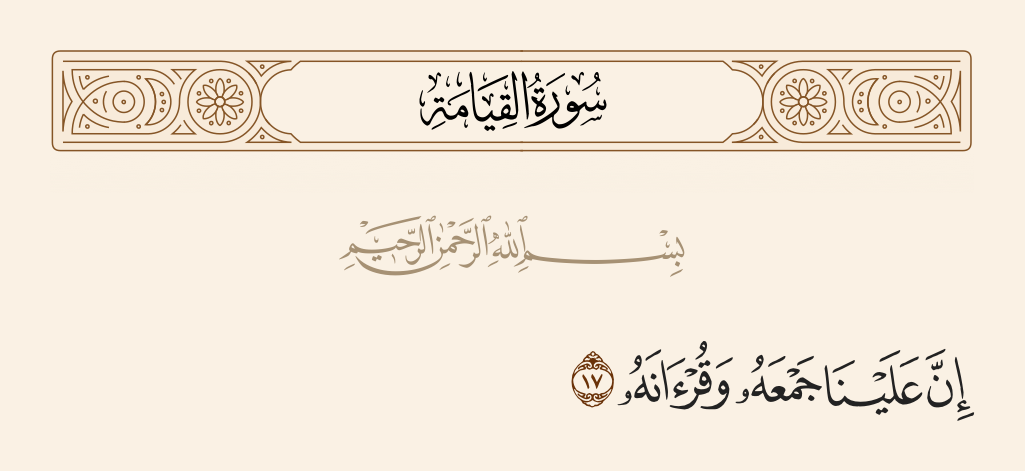 سُورَةُ القِيَامَةِ
بِسْمِ ٱللَّهِ ٱلرَّحْمَٰنِ ٱلرَّحِيمِ
إِنَّ عَلَيْنَا جَمْعَهُۥ وَقُرْءَانَهُۥ ١٧